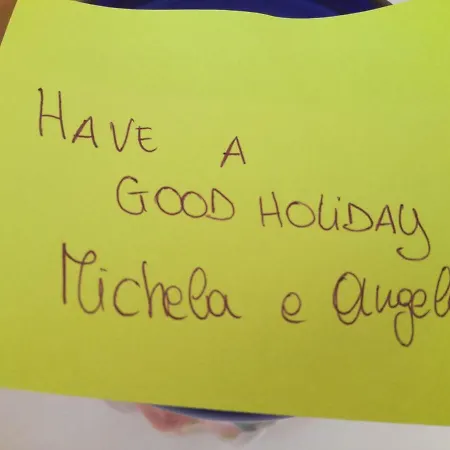 HAVE A
GOOD HOLiDAY
Michela e Angel